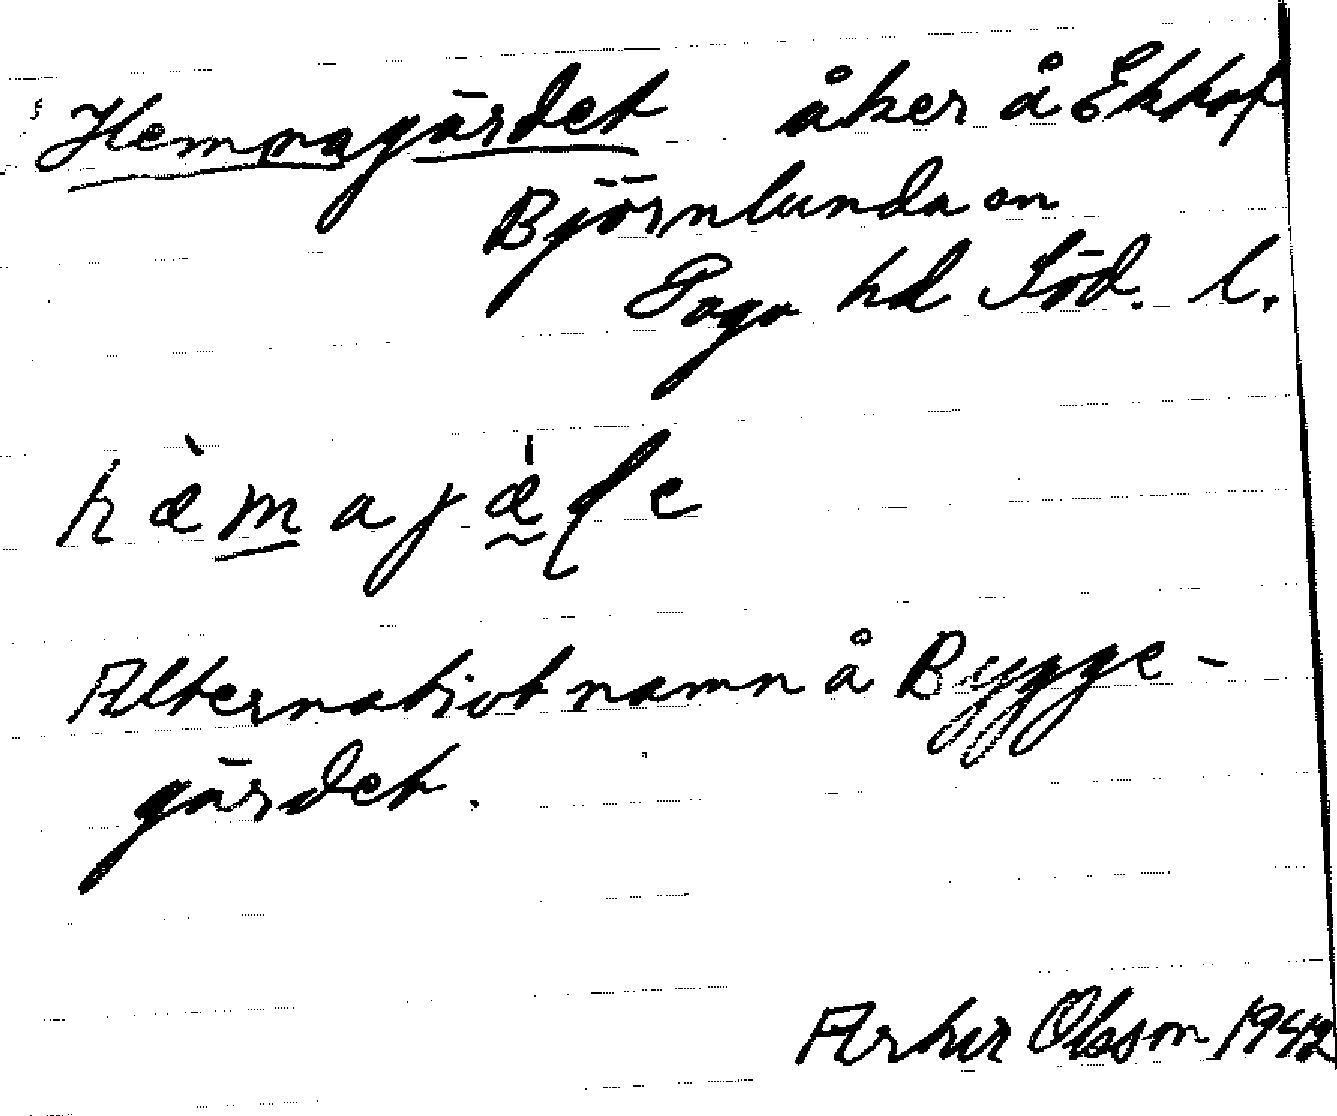 Hempagärdet åker å Ekhof
Björnlunda sn
Daga hd Söd. l.
hæ̀majæ̍ɭe
Alternativt namn å Bygge-
gärdet.
Artur Olsson 1942